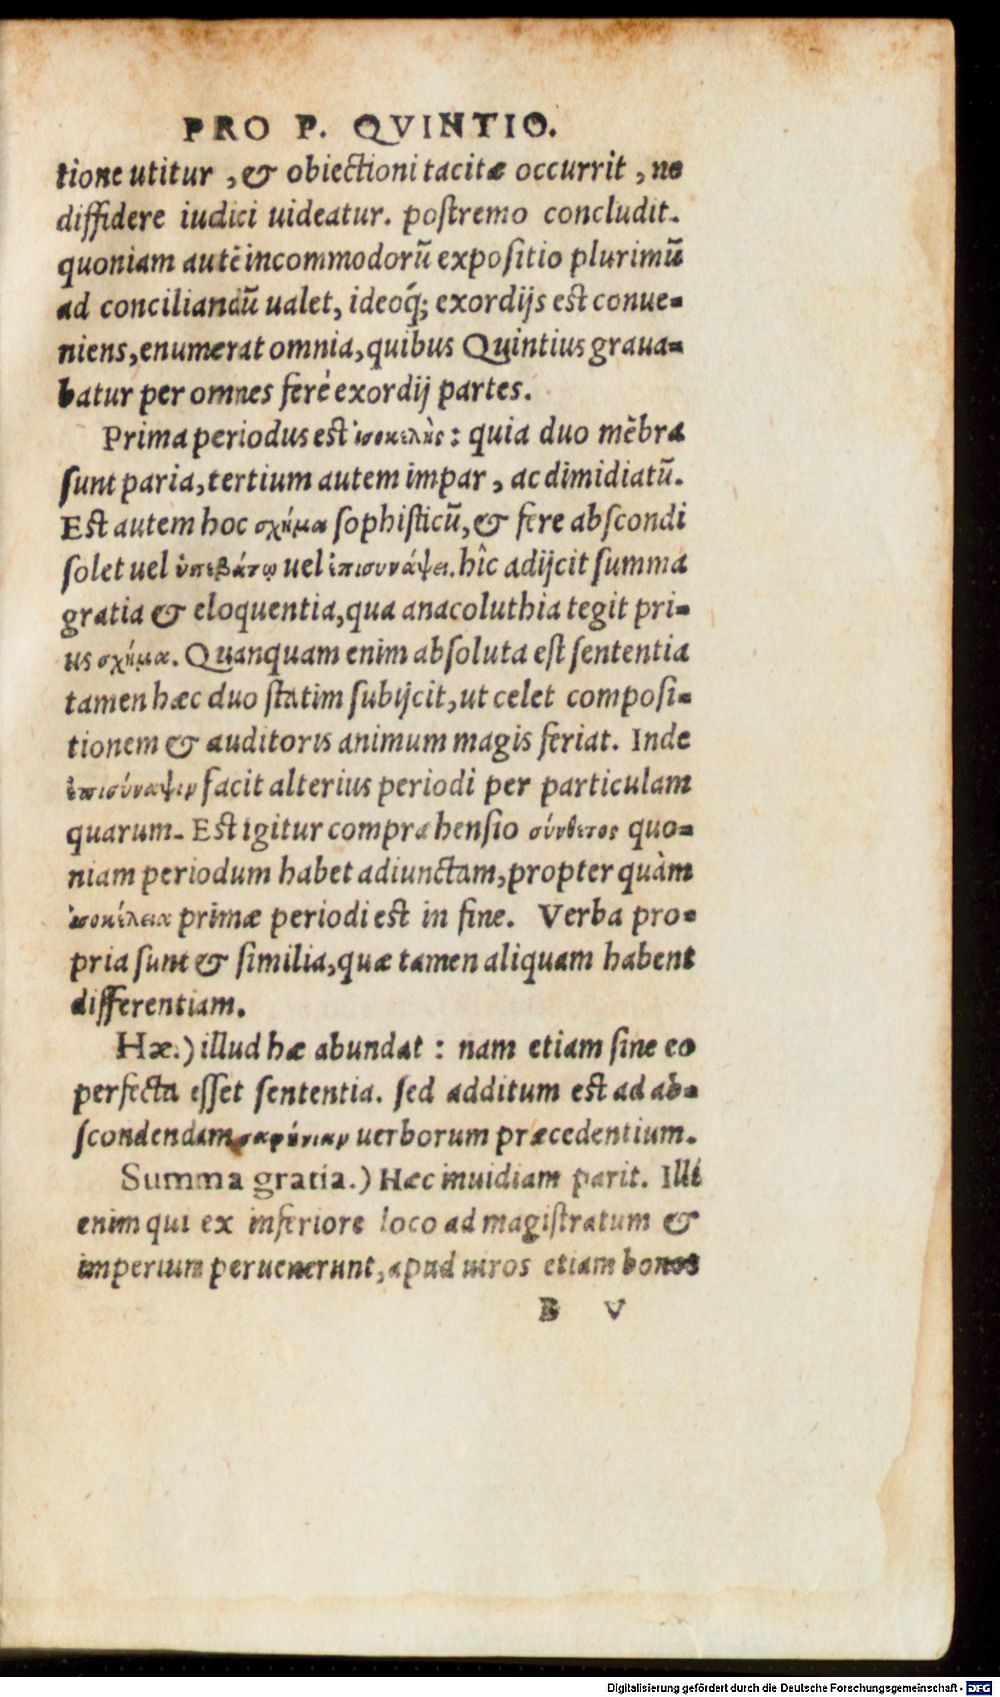 PRO P. QVINTIO.
tione utitur , & obiectioni tacitæ occurrit , ne
diffidere iudici uideatur. postremo concludit.
quoniam autē incommodorũ expositio plurimũ
ad conciliandũ ualet, ideoq́; exordijs est conue-
niens, enumerat omnia, quibus Quintius graua-
batur per omnes ferè exordij partes.
Prima periodus est ἰσοκελὴς : quia duo mēbra
sunt paria, tertium autem impar , ac dimidiatũ.
Est autem hoc σχῆμα sophisticũ, & fere abscondi
solet uel ὑπερβάτῳ uel ἐπισυνάψει. hîc adijcit summa
gratia & eloquentia, qua anacoluthia tegit pri-
us σχῆμα. Quanquam enim absoluta est sententia
tamen hæc duo statim subijcit, ut celet composi-
tionem & auditoris animum magis feriat. Inde
ἐπισύναψιν facit alterius periodi per particulam
quarum. Est igitur compræhensio σύνθετος quo-
niam periodum habet adiunctam, propter quàm
ἰσοκέλεια primæ periodi est in fine. Verba pro-
pria sunt & similia, quæ tamen aliquam habent
differentiam.
Hæ.) illud hæ abundat : nam etiam sine eo
perfecta esset sententia. sed additum est ad ab-
scondendam σαφήνιαν uerborum præcedentium.
Summa gratia.) Hæc inuidiam parit. Illi
enim qui ex inferiore loco ad magistratum &
imperium peruenerunt, apud uiros etiam bonos
B V
Digitalisierung gefördert durch die Deutsche Forschungsgemeinschaft - DFG